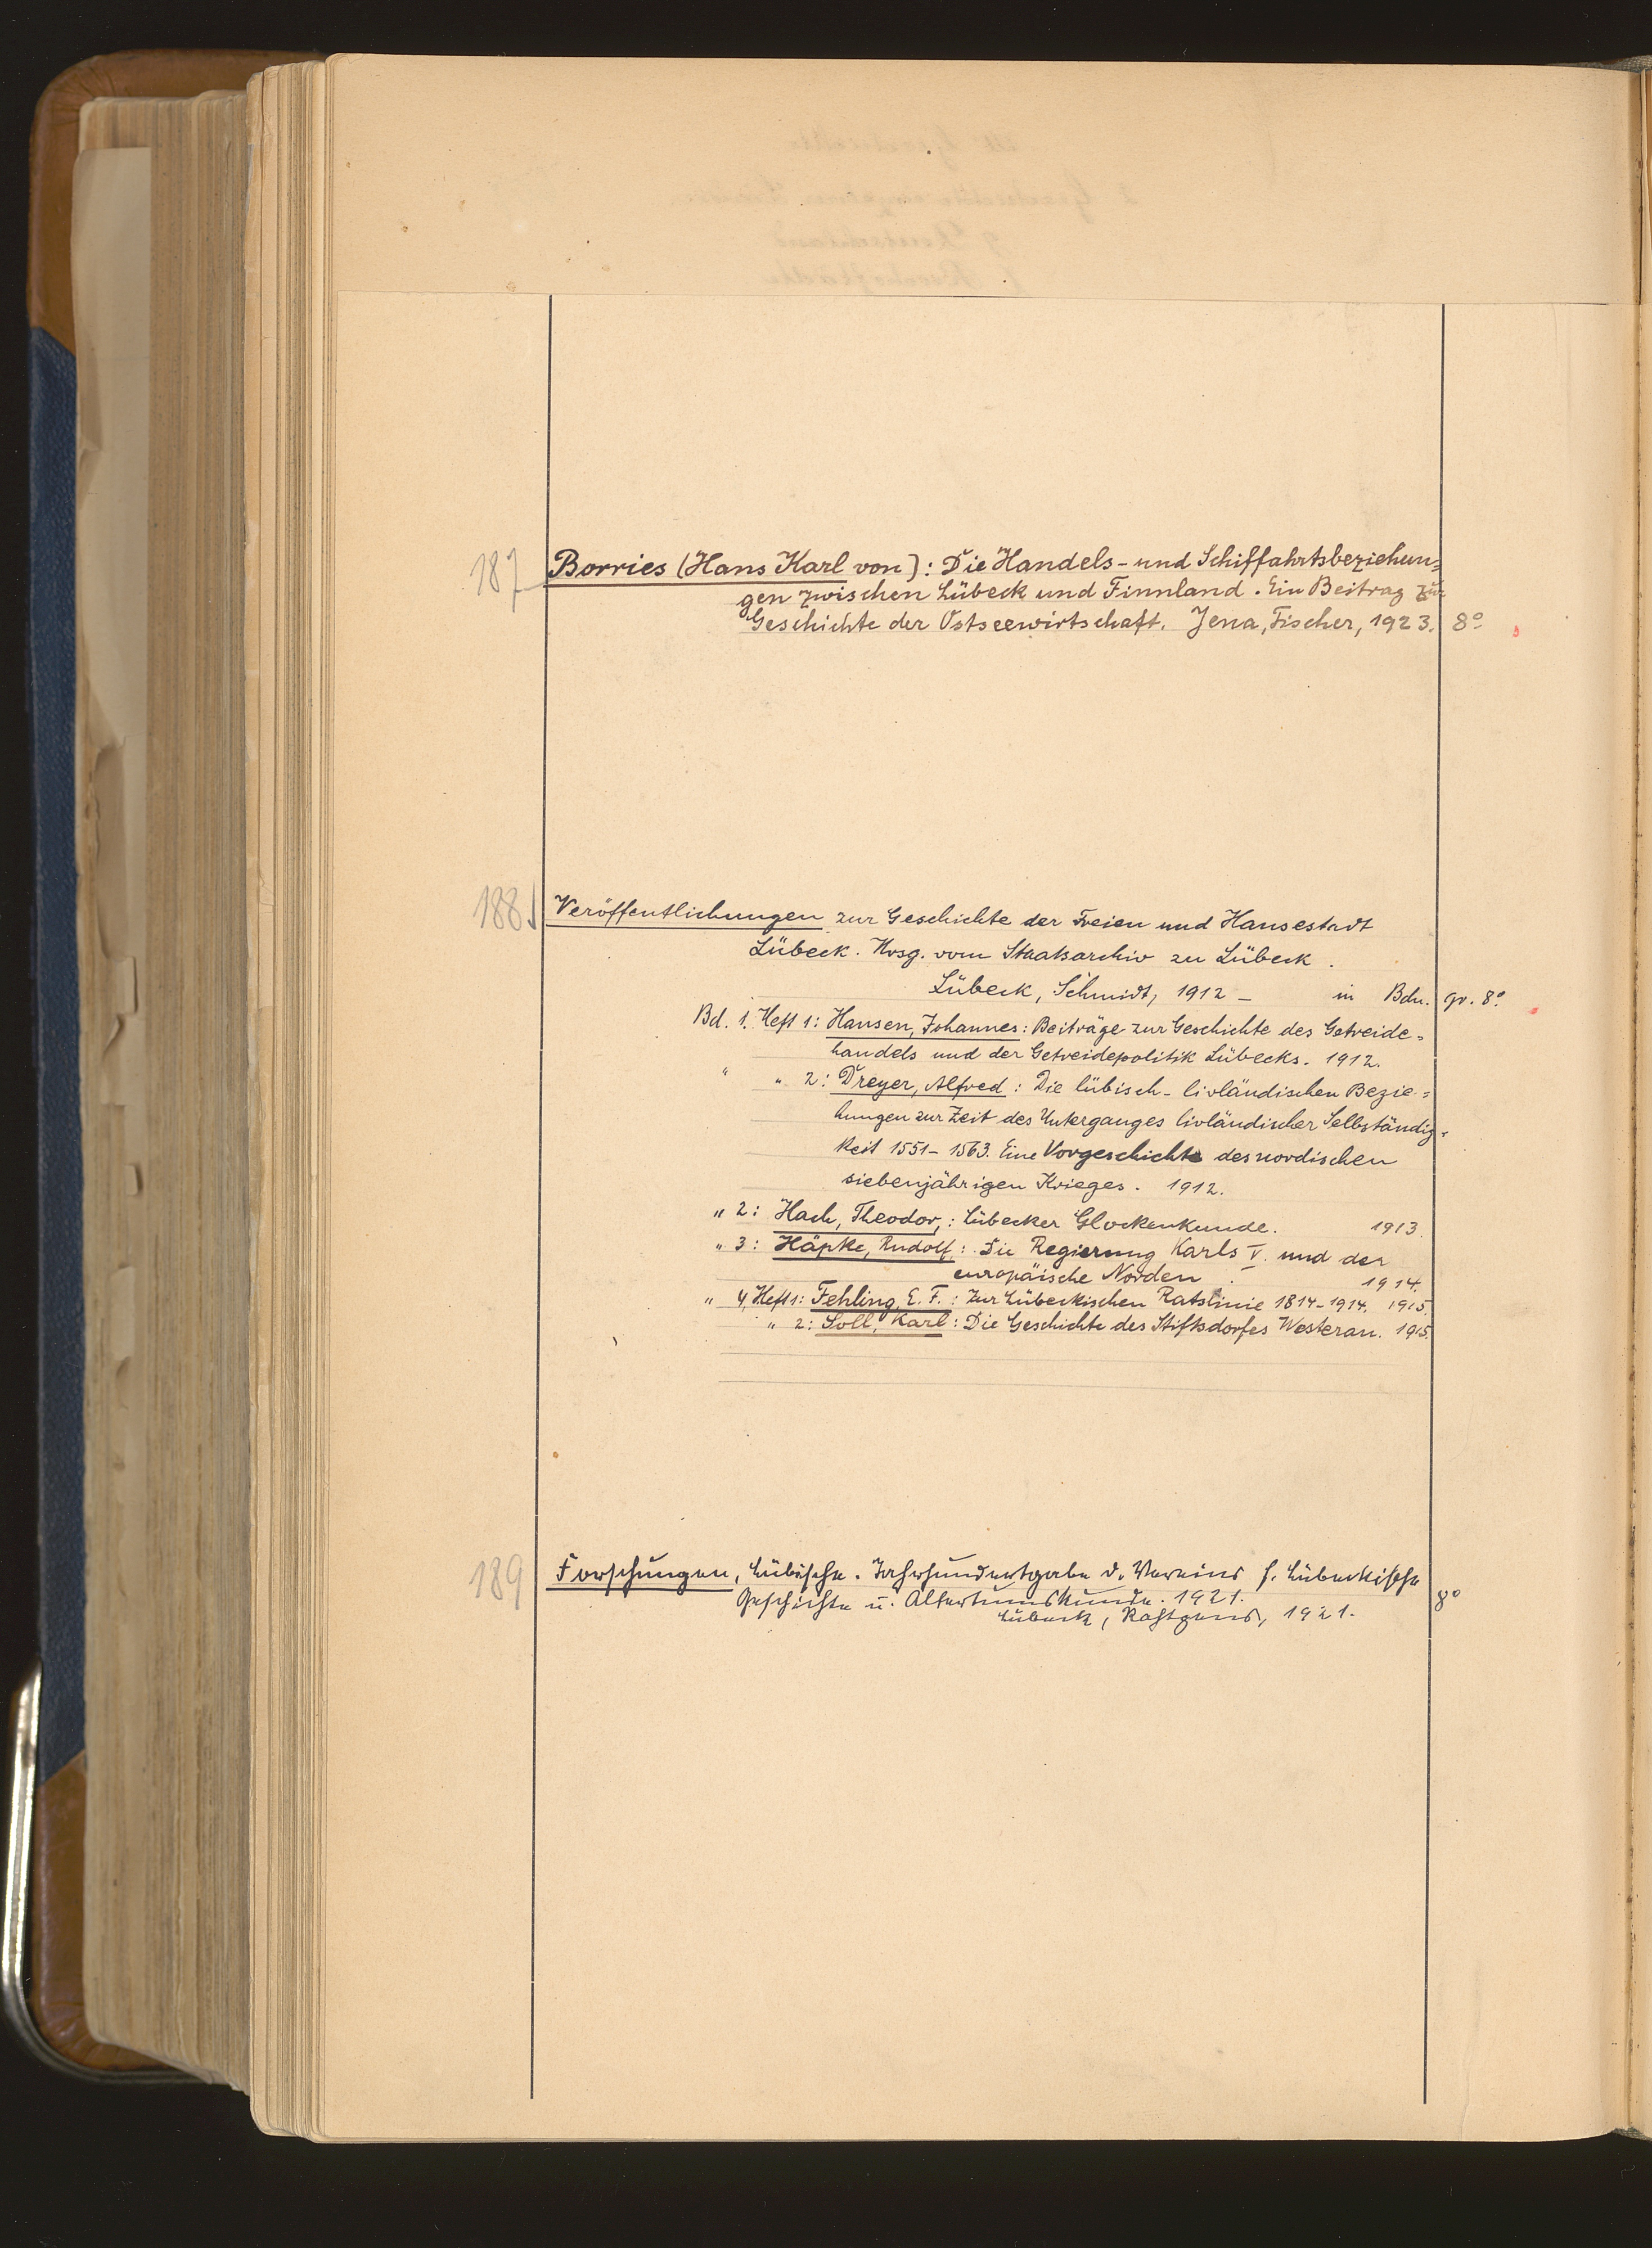 187 Borries (Hans Karl von): Die Handels- und Schiffahrtsbeziehun=
gen zwischen Lübeck und Finnland. Ein Beitrag zur
Geschichte der Ostseewirtschaft. Jena, Fischer, 1923. 8º
188 Veröffentlichungen zur Geschichte der Freien und Hansestadt
Lübeck. Hrsg. vom Staatsarchiv zu Lübeck.
Lübeck, Schmidt, 1912 – in Bdn. gr. 8º
Bd. 1. Heft 1: Hansen, Johannes: Beiträge zur Geschichte des Getreide=
handels und der Getreidepolitik Lübecks. 1912.
" " 2: Dreyer, Alfred: Die lübisch-livländischen Bezie=
hungen zur Zeit des Unterganges livländischer Selbständig=
keit 1551-1563. Eine Vorgeschichte des nordischen
siebenjährigen Krieges. 1912.
" 2: Hach, Theodor,: Lübecker Glockenkunde. 1913.
" 3: Häpke, Rudolf: Die Regierung Karls V. und der
europäische Norden. 1914.
" 4, Heft 1: Fehling, E. F.: Zur Lübeckischen Ratslinie 1814-1914. 1915.
" 2: Soll, Karl: Die Geschichte des Stiftsdorfes Westerau. 1915.
189 Forschungen, Lübische. Jahrhundertgabe d. Vereins f. Lübeckische
Geschichte u. Altertumskunde. 1921. 8º
Lübeck, Rahtgens, 1921.